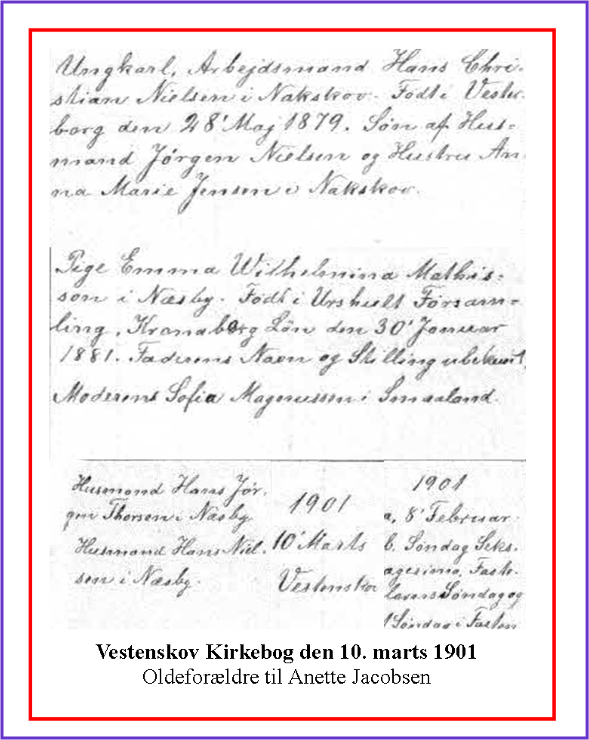 Ungkarl, Arbejdsmand Hans Chri-
stian Nielsen i Nakskov. Født i Vester-
borg den 28' Maj 1879. Søn af Hus-
mand Jørgen Nielsen og Hustru An-
na Marie Jensen i Nakskov.
Pige Emma Wilhelmina Mathis-
son i Næsby. Født i Urshult Forsam-
ling, Kronoberg Län den 30' Januar
1881. Faderens Navn og Stilling ubekendt,
Moderens Sofia Magnussen i Smaaland.
Husmand Hans Jør-
gen Thorsen i Næsby.
Husmand Hans Niel-
sen i Næsby.
1901
10' Marts
Vestenskov
1901
a, 8' Februar.
b. Søndag Seks-
agesima, Faste-
lavns Søndag og
1 Søndag i Fasten
Vestenskov Kirkebog den 10. marts 1901
Oldeforældre til Anette Jacobsen